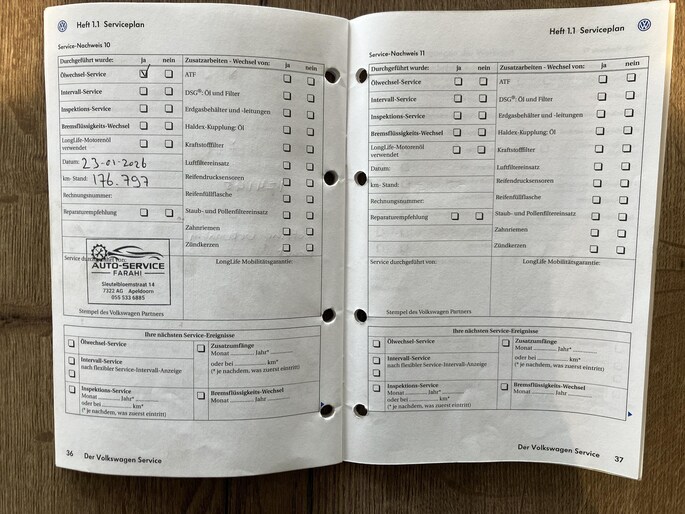 Heft 1.1 Serviceplan
Service-Nachweis 10
Durchgeführt wurde: ja nein
Ölwechsel-Service
Intervall-Service
Inspektions-Service
Bremsflüssigkeits-Wechsel
LongLife-Motorenöl
verwendet
Datum: 23-01-2026
km- Stand: 176.797
Rechnungsnummer:
Reparaturempfehlung
Zusatzarbeiten - Wechsel von: ja nein
ATF
DSG®: Öl und Filter
Erdgasbehälter und -leitungen
Haldex-Kupplung: Öl
Kraftstofffilter
Luftfiltereinsatz
Reifendrucksensoren
Reifenfüllflasche
Staub- und Pollenfiltereinsatz
Zahnriemen
Zündkerzen
Service durchgeführt von:
AUTO-SERVICE
FARAHI
Sleutelbloemstraat 14
7322 AG Apeldoorn
055 533 6885
Stempel des Volkswagen Partners
LongLife Mobilitätsgarantie:
Ihre nächsten Service-Ereignisse
Ölwechsel-Service
Intervall-Service
nach flexibler Service-Intervall-Anzeige
Inspektions-Service
Monat ............ Jahr* ............
oder bei ............ km*
(* je nachdem, was zuerst eintritt)
Zusatzumfänge
Monat ............ Jahr* ............
oder bei ............ km*
(* je nachdem, was zuerst eintritt)
Bremsflüssigkeits-Wechsel
Monat ............ Jahr ............
36 Der Volkswagen Service
Heft 1.1 Serviceplan
Service-Nachweis 11
Durchgeführt wurde: ja nein
Ölwechsel-Service
Intervall-Service
Inspektions-Service
Bremsflüssigkeits-Wechsel
LongLife-Motorenöl
verwendet
Datum:
km- Stand:
Rechnungsnummer:
Reparaturempfehlung
Zusatzarbeiten - Wechsel von: ja nein
ATF
DSG®: Öl und Filter
Erdgasbehälter und -leitungen
Haldex-Kupplung: Öl
Kraftstofffilter
Luftfiltereinsatz
Reifendrucksensoren
Reifenfüllflasche
Staub- und Pollenfiltereinsatz
Zahnriemen
Zündkerzen
Service durchgeführt von:
Stempel des Volkswagen Partners
LongLife Mobilitätsgarantie:
Ihre nächsten Service-Ereignisse
Ölwechsel-Service
Intervall-Service
nach flexibler Service-Intervall-Anzeige
Inspektions-Service
Monat ............ Jahr* ............
oder bei ............ km*
(* je nachdem, was zuerst eintritt)
Zusatzumfänge
Monat ............ Jahr* ............
oder bei ............ km*
(* je nachdem, was zuerst eintritt)
Bremsflüssigkeits-Wechsel
Monat ............ Jahr ............
Der Volkswagen Service 37